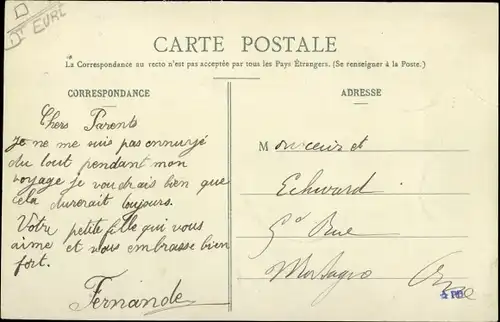 Dt EURL
CARTE POSTALE
La Correspondance au recto n'est pas acceptée par tous les Pays Étrangers. (Se renseigner à la Poste.)
CORRESPONDANCE
Chers Parents
Je ne me suis pas ennuyé
du tout pendant mon
voyage je voudrais bien que
cela durerait toujours.
Votre petite fille qui vous
aime et vous embrasse bien
fort.
Fernande
ADRESSE
M
Rue
Mortagne Orne